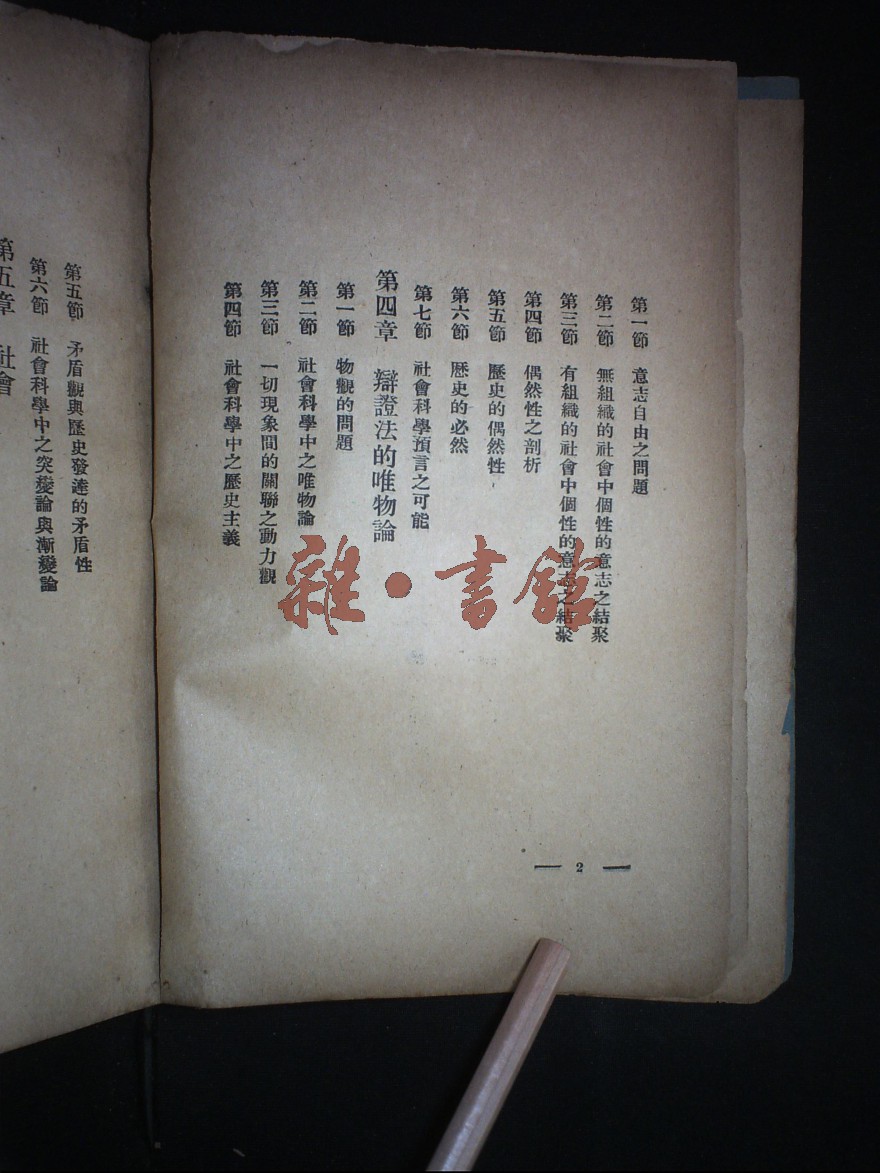 第一節 意志自由之問題
第二節 無組織的社會中個性的意志之結聚
第三節 有組織的社會中個性的意志之結聚
第四節 偶然性之剖析
第五節 歷史的偶然性
第六節 歷史的必然
第七節 社會科學預言之可能
第四章 辯證法的唯物論
第一節 物觀的問題
第二節 社會科學中之唯物論
第三節 一切現象間的關聯之動力觀
第四節 社會科學中之歷史主義
2
第五節 矛盾觀與歷史發達的矛盾性
第六節 社會科學中之突變論與漸變論
第五章 社會
雜·書館